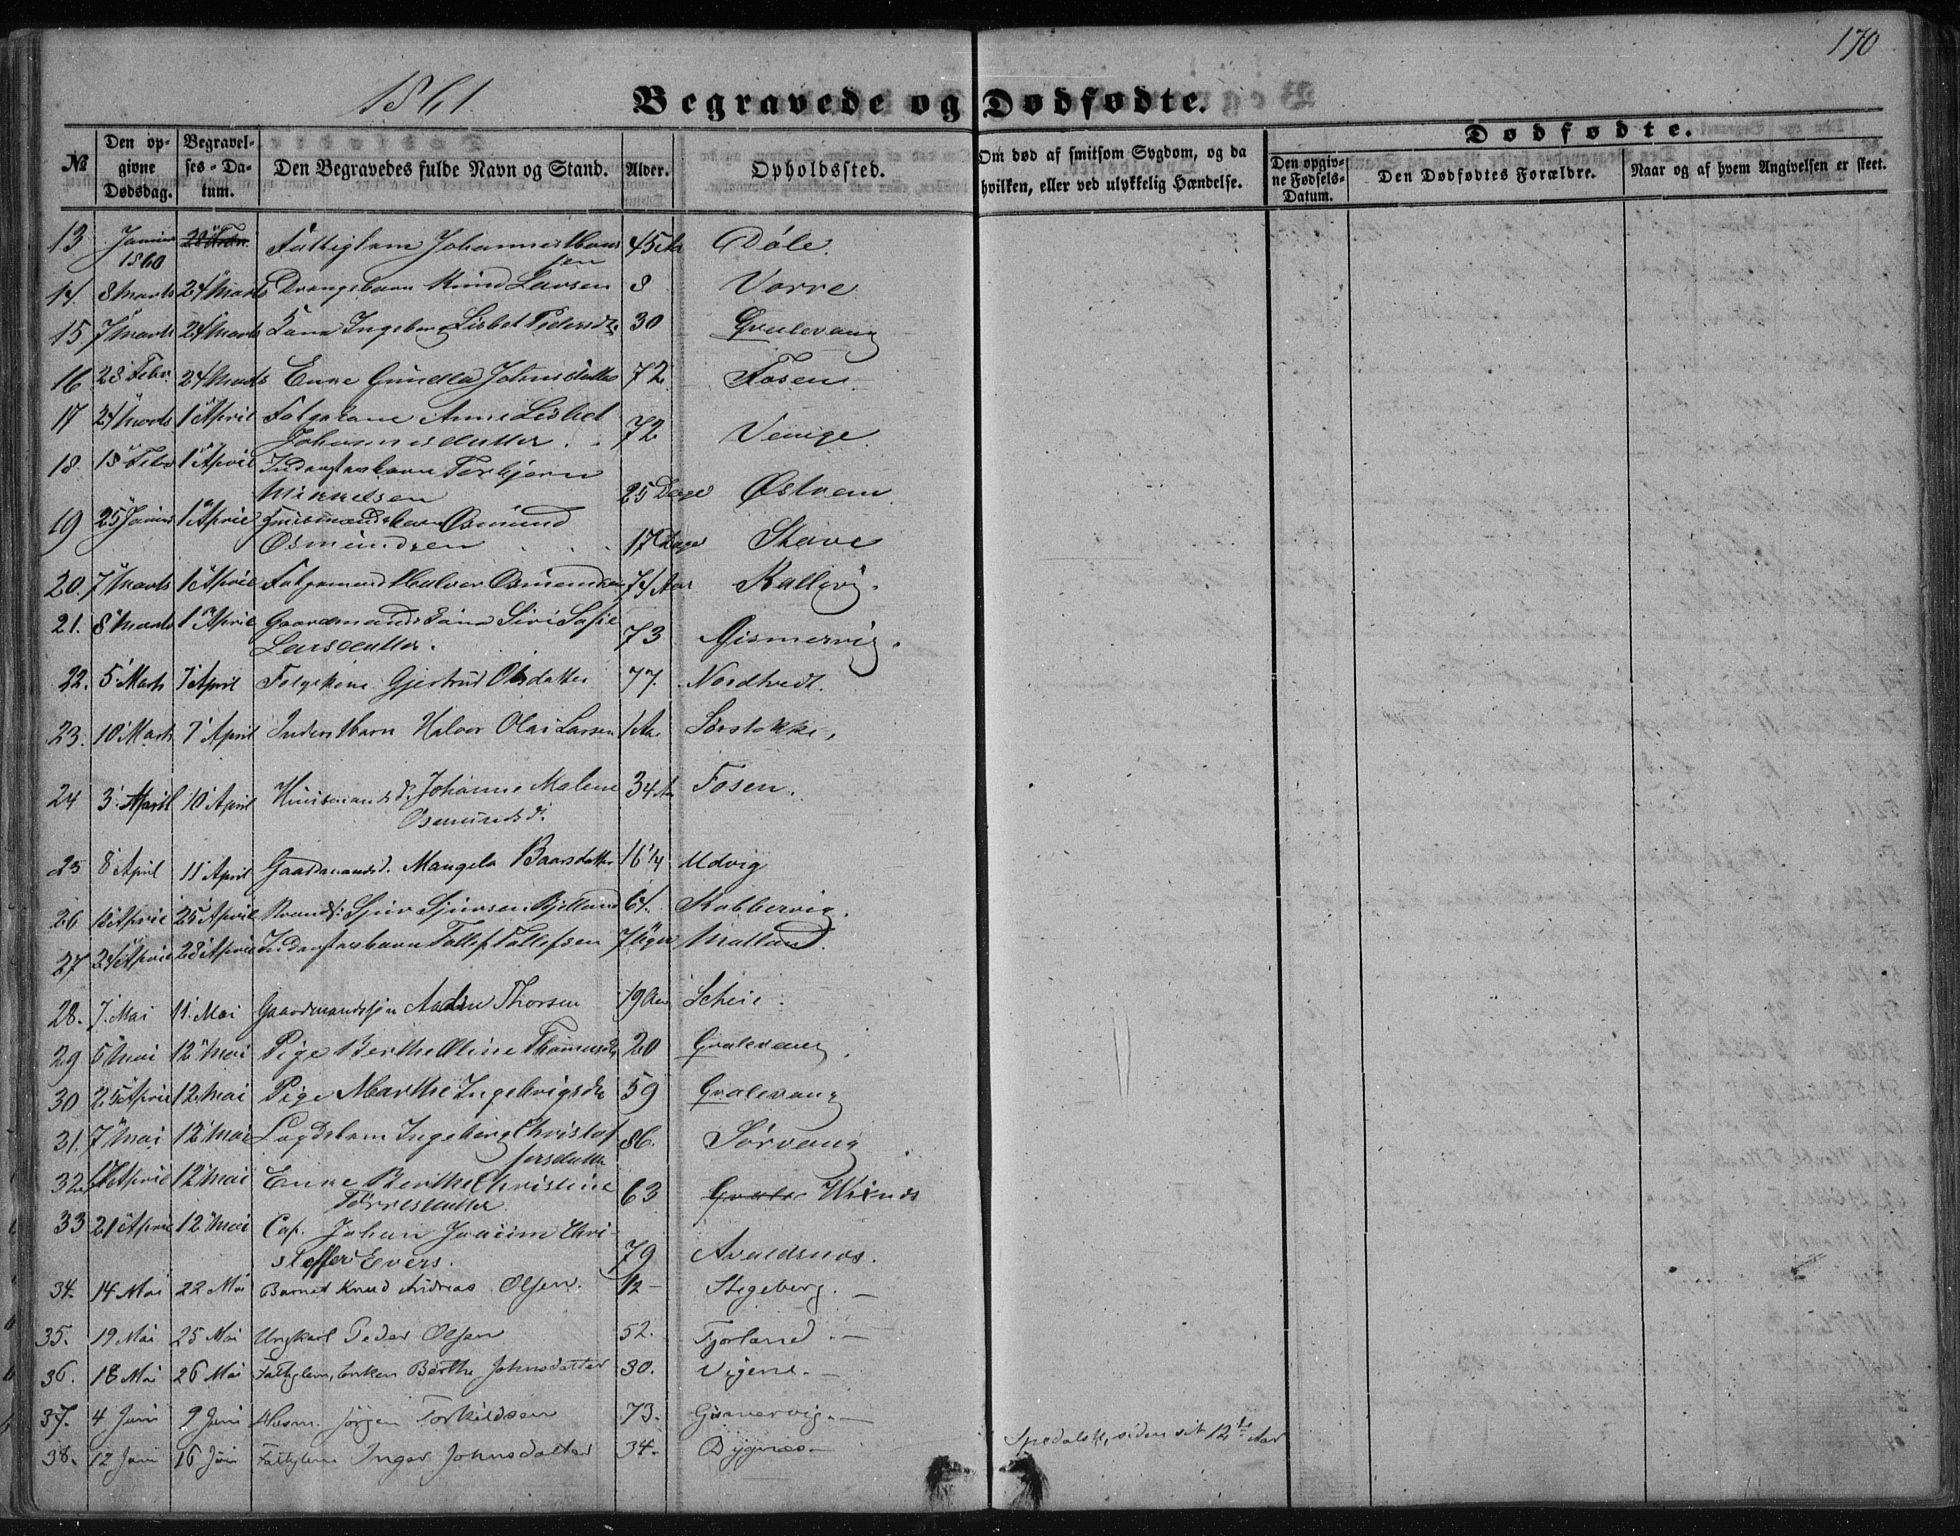 170
1861.
Begravede og Dødfødte.
№ | Den opgivne Dødsdag. | Begravelses-Datum. | Den Begravedes fulde Navn og Stand. | Alder. | Opholdssted. | Om død af smitsom Sygdom, og da hvilken, eller ved ulykkelig Hændelse. | Dødfødte. Den opgivne Fødsels-Datum. | Den Dødfødtes Forældre. | Naar og af hvem Angivelsen er skeet.
13 1860 Fattiglem Johannes Hansen 45 Aar Døle.
14 8 Marts 24 Marts Drengebarn Knud Larsen 8 Vorre
15. 7 Marts 24 Marts Kone Ingeborg Lisbet Pedersd. 30 Qvalevaag
16 28 Febr. 24 Marts Enke Gundla Johnsdatter 72 Fosen
17 24 Marts 1 April Folgekone Anne Lisbet
Johannesdatter. 72
18. 15 Febr 1 April Torbjørn
Mikkelsen 25 Dage Østrem
19 25 1 April Husmandsbarn Osmund
Osmundsen 17 Dage Stave
20. 7 Marts 1 April Folgemand Halvor Osmundsen 74 Aar Kallevig.
21. 8 Marts 1 April Gaardmands Kone Siri Sofie
Larsdatter. 73 Gismervig.
22. 5 Marts 7 April Folgekone Gjertrud Olsdatter 77. Nordtvedt.
23. 10 Marts 7 April Inderstbarn Halvor Olai Larsen 1 Aar Sørstokke,
24 3 April 10 April Huusmandsd. Johanne Malene
Osmundsd. 34 Aar Fosen.
25 8 April 11 April Gaardmandsd. Mangela Baarsdatter 16 1/4 Udvig
26 18 April 25 April Sjur Sjursen Bjelland 64. Kobbervig.
27 24 April 28 April Tollef Tollefsen 7 Uger Matland.
28. 7. Mai 11. Mai Gaardmandssøn Aaden Thorsen 19 Aar Scheie.
29 5 Mai 12 Mai Pige Berthe Oline Thomasd. 20 Qvalevaag.
30 25 April 12 Mai Pige Marthe Ingebrigtsd. 59 Qvalevaag
31. 7 Mai 12 Mai Lægdslem Ingeborg Christof-
fersdatter 86. Sørvaag
32 April 12 Mai Enke Berthe Christine
Tørresdatter. 63 Viksnes
33 21 April 12 Mai Cap. Johan Joacim Chri-
stoffer Evers. 79 Avaldsnes.
34. 14 Mai 22 Mai Barnet Knud Andreas Olsen. 1/2 – Stegeberg. –
35. 19 Mai 25 Mai Ungkarl Peder Olsen 52. Fjorland. –
36. 18 Mai 26 Mai Fattiglem, Enken Berthe Johnsdatter 30. Vigene. –
37. 4 Juni 9 Juni Husm. Jørgen Torkildsen 73. Gismervig. –
38. 12 Juni 16 Juni Fattiglem Inger Johnsdatter 34. Dygnæs – Spedalsk, siden sit 12te Aar